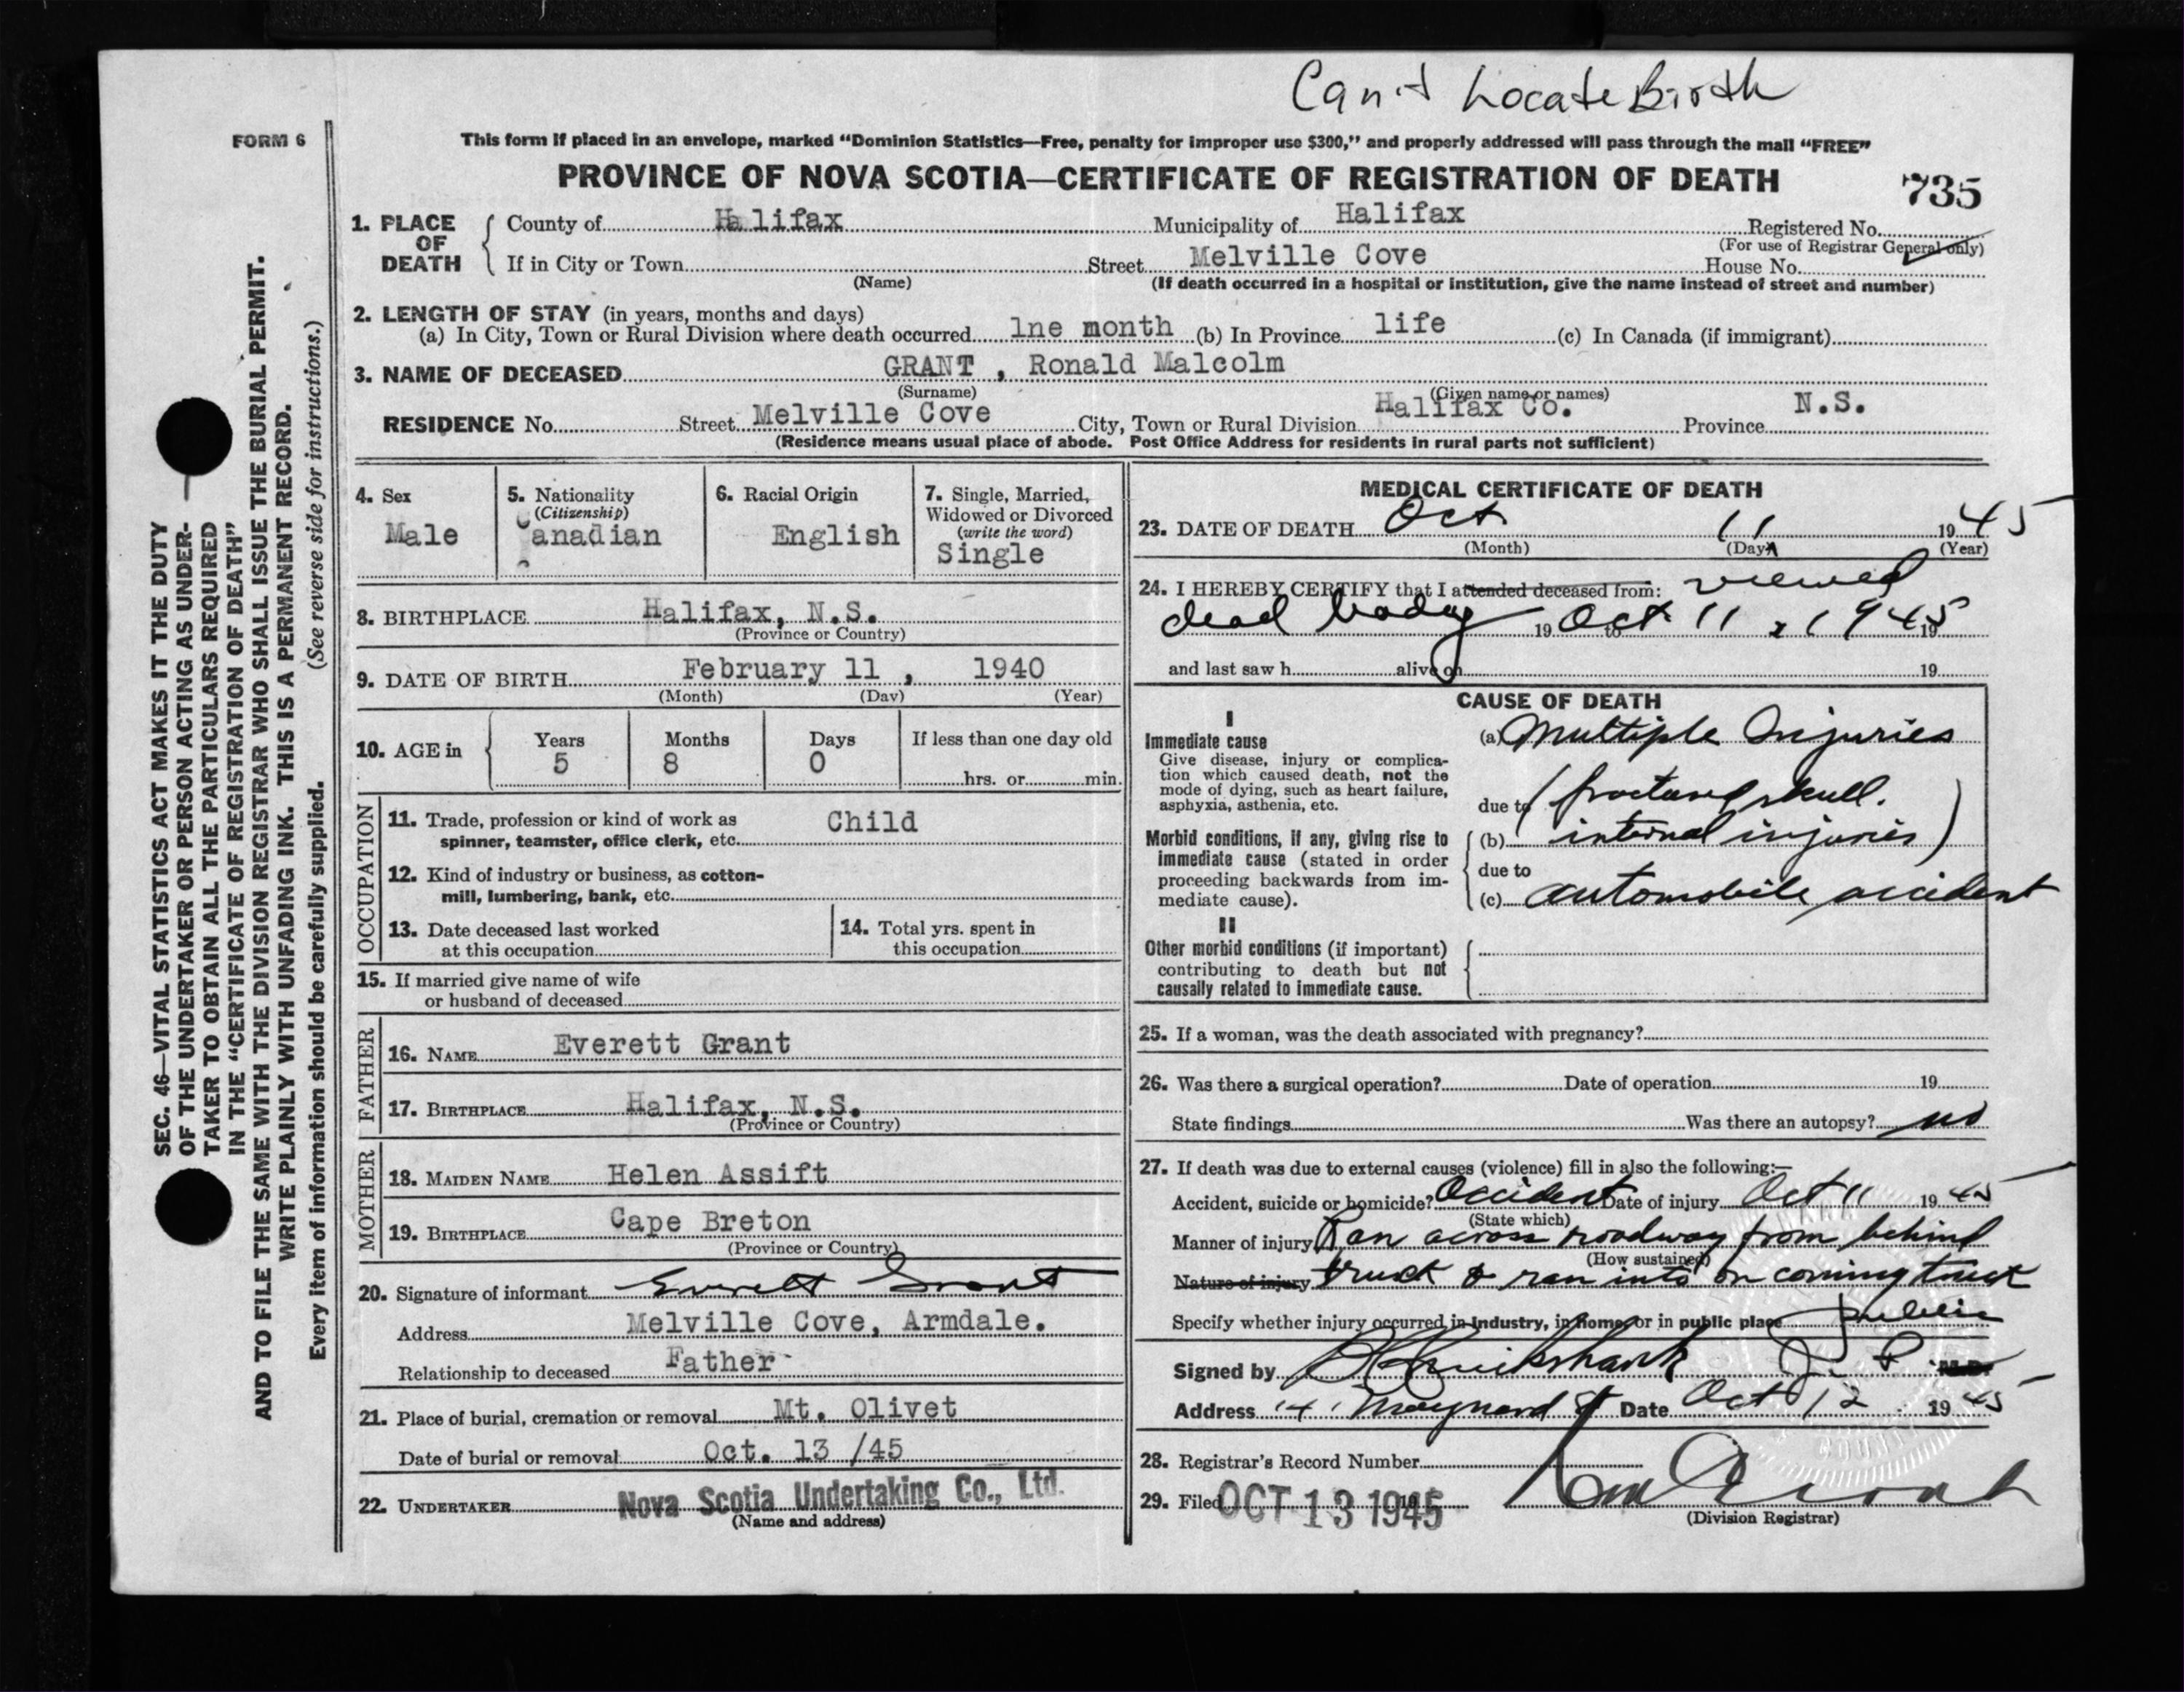 Can't Locate Birth
FORM 6
This form if placed in an envelope, marked “Dominion Statistics—Free, penalty for improper use $300,” and properly addressed will pass through the mail “FREE”
PROVINCE OF NOVA SCOTIA—CERTIFICATE OF REGISTRATION OF DEATH
735
1. PLACE OF DEATH County of Halifax Municipality of Halifax Registered No.
(For use of Registrar General only)
If in City or Town Street Melville Cove House No.
(Name) (If death occurred in a hospital or institution, give the name instead of street and number)
2. LENGTH OF STAY (in years, months and days)
(a) In City, Town or Rural Division where death occurred lne month (b) In Province life (c) In Canada (if immigrant)
3. NAME OF DECEASED GRANT , Ronald Malcolm
(Surname) (Given name or names)
RESIDENCE No. Street Melville Cove City, Town or Rural Division Halifax Co. Province N.S.
(Residence means usual place of abode. Post Office Address for residents in rural parts not sufficient)
4. Sex
Male
5. Nationality
(Citizenship)
Canadian
6. Racial Origin
English
7. Single, Married,
Widowed or Divorced
(write the word)
Single
8. BIRTHPLACE Halifax, N.S.
(Province or Country)
9. DATE OF BIRTH February 11 , 1940
(Month) (Day) (Year)
10. AGE in Years Months Days If less than one day old
5 8 0 hrs. or min.
OCCUPATION
11. Trade, profession or kind of work as
spinner, teamster, office clerk, etc. Child
12. Kind of industry or business, as cotton-
mill, lumbering, bank, etc.
13. Date deceased last worked
at this occupation
14. Total yrs. spent in
this occupation
15. If married give name of wife
or husband of deceased
FATHER
16. NAME Everett Grant
17. BIRTHPLACE Halifax, N.S.
(Province or Country)
MOTHER
18. MAIDEN NAME Helen Assift
19. BIRTHPLACE Cape Breton
(Province or Country)
20. Signature of informant Everett Grant
Address Melville Cove, Armdale.
Relationship to deceased Father
21. Place of burial, cremation or removal Mt. Olivet
Date of burial or removal Oct. 13 /45
22. UNDERTAKER Nova Scotia Undertaking Co., Ltd.
(Name and address)
MEDICAL CERTIFICATE OF DEATH
23. DATE OF DEATH Oct 11 1945
(Month) (Day) (Year)
24. I HEREBY CERTIFY that I attended deceased from: viewed
dead body 19 Oct 11, 1945 to 19
and last saw h alive on 19
CAUSE OF DEATH
I
Immediate cause
Give disease, injury or complica-
tion which caused death, not the
mode of dying, such as heart failure,
asphyxia, asthenia, etc.
(a) Multiple Injuries
due to (fractured skull.
Morbid conditions, if any, giving rise to
immediate cause (stated in order
proceeding backwards from im-
mediate cause).
(b) internal injuries)
due to
(c) automobile accident
II
Other morbid conditions (if important)
contributing to death but not
causally related to immediate cause.
25. If a woman, was the death associated with pregnancy?
26. Was there a surgical operation? Date of operation 19
State findings Was there an autopsy? no
27. If death was due to external causes (violence) fill in also the following:—
Accident, suicide or homicide? Accident Date of injury Oct 11 1945
(State which)
Manner of injury Ran across roadway from behind
(How sustained)
Nature of injury truck & ran into on coming truck
Specify whether injury occurred in industry, in home, or in public place public
Signed by Cruikshank J. P. M.D.
Address Maynard St Date Oct 12 1945
28. Registrar's Record Number
29. Filed OCT 13 1945 19
(Division Registrar)
SEC. 46—VITAL STATISTICS ACT MAKES IT THE DUTY
OF THE UNDERTAKER OR PERSON ACTING AS UNDER-
TAKER TO OBTAIN ALL THE PARTICULARS REQUIRED
IN THE “CERTIFICATE OF REGISTRATION OF DEATH”
AND TO FILE THE SAME WITH THE DIVISION REGISTRAR WHO SHALL ISSUE THE BURIAL PERMIT.
WRITE PLAINLY WITH UNFADING INK. THIS IS A PERMANENT RECORD.
Every item of information should be carefully supplied. (See reverse side for instructions.)